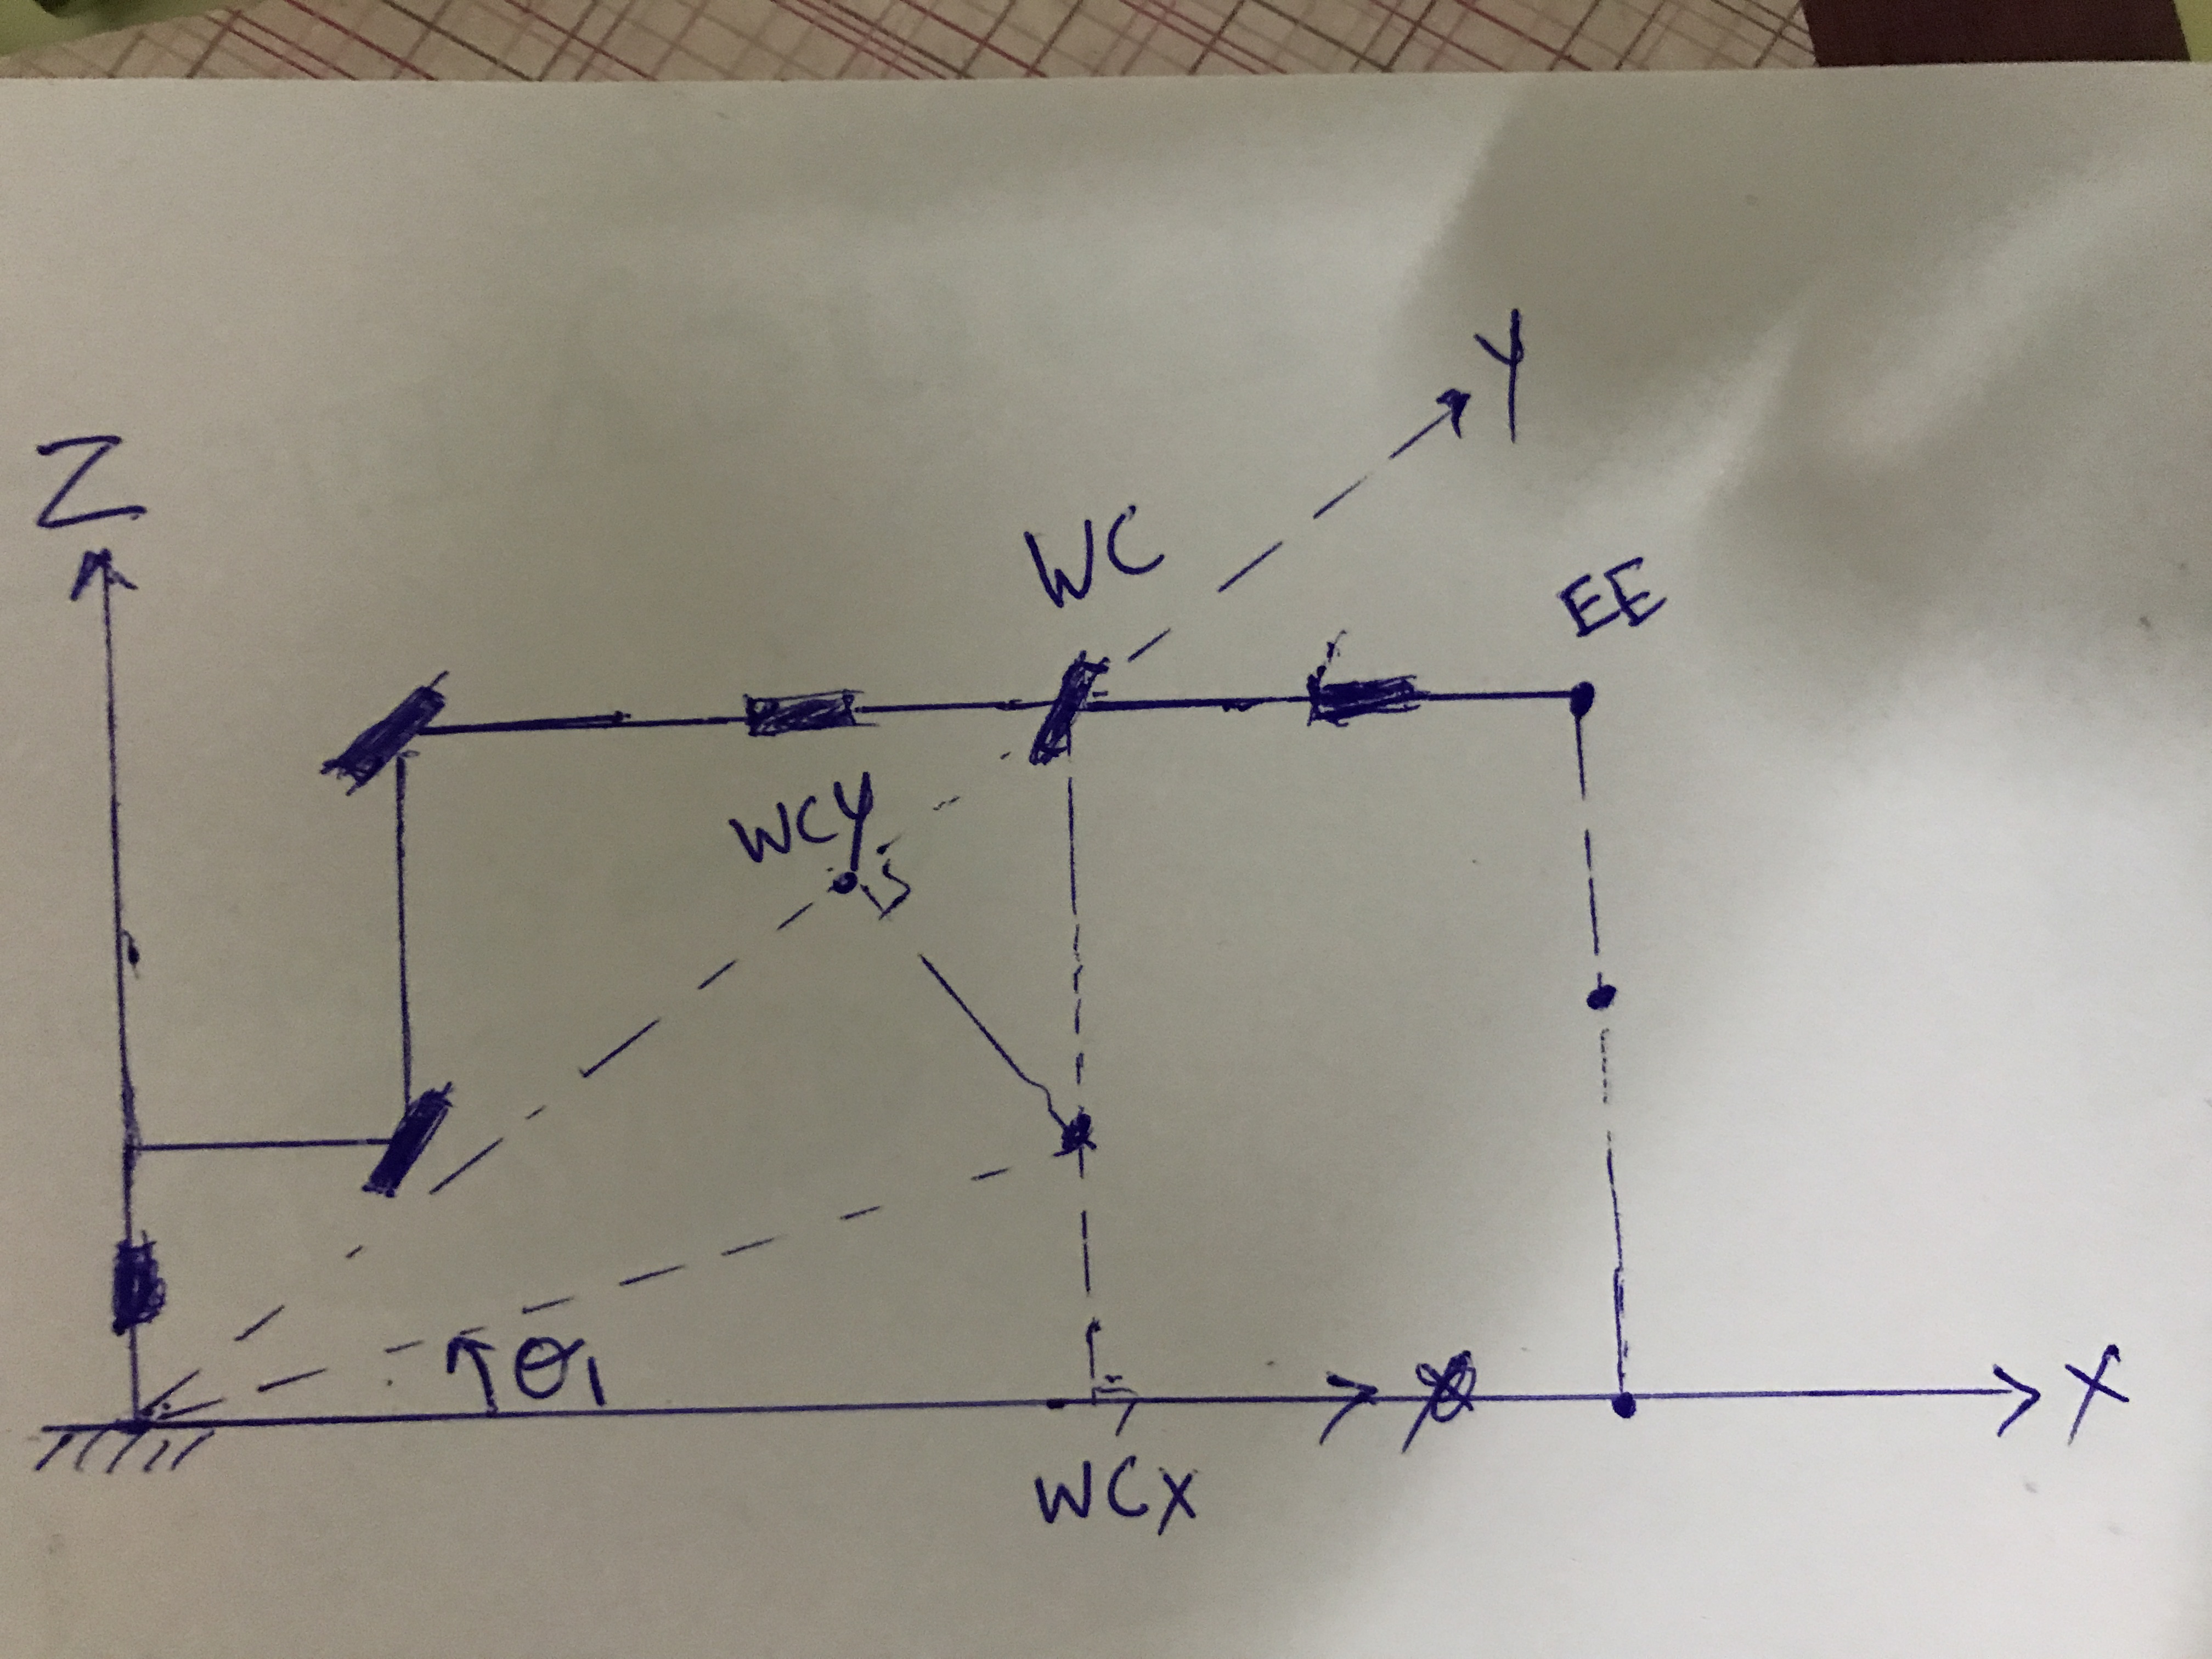 Y
Z
WC
EE
WCY
θ1
X
WCX